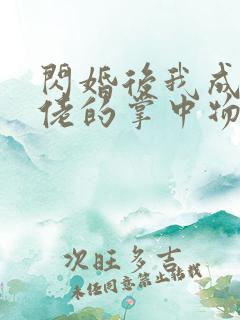 閃婚後我成
佬的掌中物
次旺多吉
未经同意禁止转载